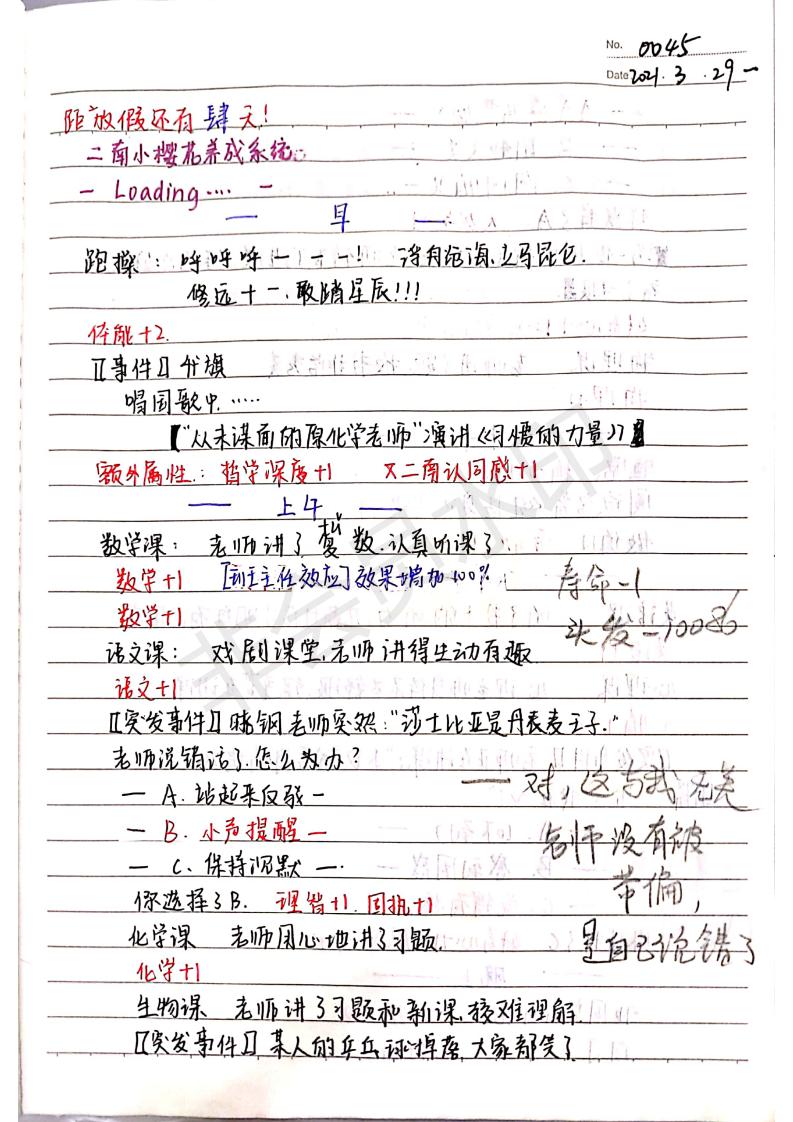 No. 0045
Date 2021.3.29 一
距放假还有肆天!
二南小樱花养成系统。
— Loading.... —
— 早 —
跑操: 呼呼呼———! 济舟沧海,立马昆仑.
修远十一,敢踏星辰!!!
体能+2.
【事件】升旗
唱国歌中.....
【"从未谋面的原化学老师"演讲《习惯的力量》】
额外属性: 哲学深度+1 对二南认同感+1
— 上午 —
数学课: 老师讲了复数,认真听课了.
数学+1 [班主任效应]效果增加100% 寿命-1
数学+1 头发-10086
语文课: 戏剧课堂,老师讲得生动有趣
语文+1
【突发事件】晓钢老师突然:"莎士比亚是丹麦王子."
老师说错话了,怎么办?
— A. 站起来反驳 — —对,这与我无羌
— B. 小声提醒 — 名师没有被
— C. 保持沉默 —. 带偏,
你选择了B. 理智+1 固执+1
化学课 老师用心地讲了习题. 是自己说错了
化学+1
生物课 老师讲了习题和新课,较难理解.
【突发事件】某人的乒乓球掉落,大家都笑了
非会员水印